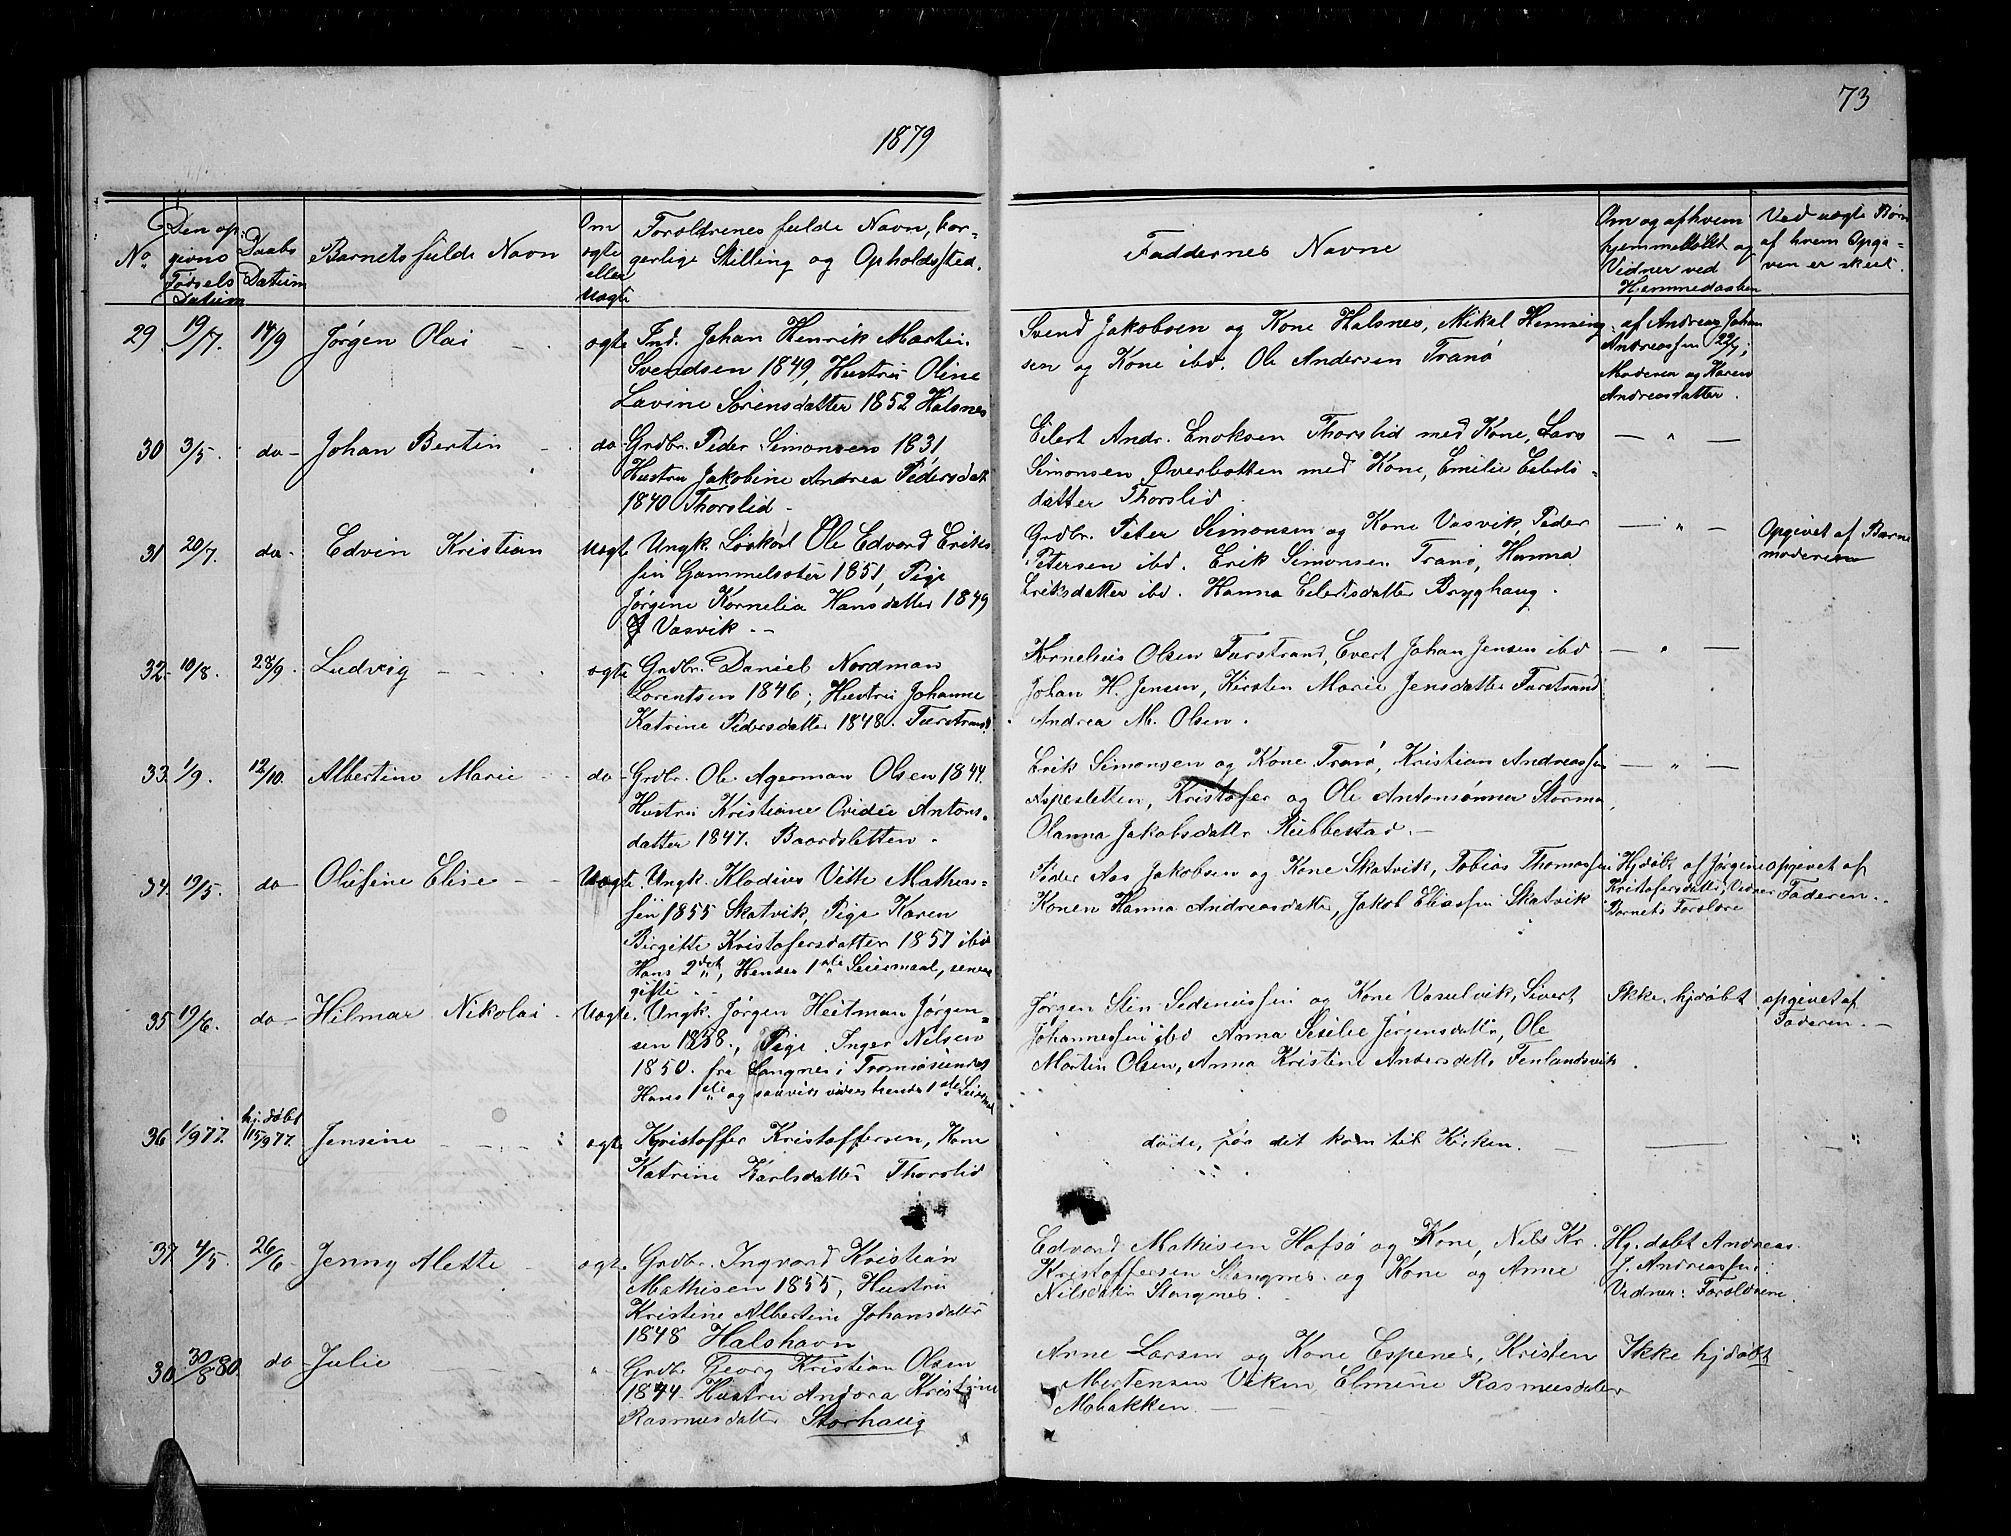 1879
73
No
Den op-
givne
Fødsels
Datum
Daabs
Datum
Barnets fulde Navn
Om
ægte
eller
uægte
Forældrenes fulde Navn, bor-
gerlige Stilling og Opholdssted.
Faddernes Navne
Om og af hvem
hjemmedøbt og
Vidner ved
Hjemmedaaben
Ved uægte Børn
af hvem Opgi-
ven er skeet.
29 19/7. 14/9 Jørgen Olai ægte Ind. Johan Henrik Martin
Svendsen 1849, Hustru Oline
Lavine Sørensdatter 1852 Halsnes
Svend Jakobsen og Kone Halsnes, Mikal Henning-
sen og Kone ibd. Ole Andersen Tranø
af Andreas Johan
Andreassen 22/7;
Moderen og Karen
Andreasdatter.
30 3/5. do- Johan Bertin do- Grdbr. Peder Simonsen 1831
Hustru Jakobine Andrea Pedersdat
1840 Thorslid -
Eilert Andr. Enoksen Thorslid med Kone, Lars
Simonsen Øverbotten med Kone, Emilie Eilerts-
datter Thorslid
— " —
31 20/7. do- Edvin Kristian uægte Ungk. Løskarl Ole Edvard Eriks
sen Gammelsæter 1851, Pige
Jørgine Kornelia Hansdatter 1849
Vasvik. --
Grdbr. Peter Simonsen og Kone Vasvik, Peder
Petersen ibd. Erik Simonsen Tranø, Hanna
Eriksdatter ibd. Hanna Eilertsdatter Brygghaug.
— " —
Opgivet af Barne
moderen
32 10/8. 28/9. Ludvig ægte Grdbr. Daniel Nordman
Lorentsen 1846; Hustru Johanne
Katrine Pedersdatter 1848. Furstrand.
Kornelius Olsen Furstrand, Evert Johan Jensen ibd
Johan H. Jensen, Kirsten Marie Jensdatter Furstrand
Andrea M. Olsen.
— " —
33. 1/9. 12/10. Albertine Marie do- Grdbr. Ole Agerman Olsen 1844.
Hustru Kristiane Ovidie Antons-
datter 1847. Baardsletten.
Erik Simonsen og Kone Tranø, Kristian Andreassen
Aspesletten, Kristofer og Ole Antonsønner Stormo,
Olanna Jakobsdatter Rubbestad. —
— " —
34. 19/5. do- Olufine Elise uægte. Ungk. Klodius Vitte Mathias-
sen 1855 Skatvik, Pige Karen
Birgitte Kristofersdatter 1857 ibid
Hans 2det, Hendes 1ste Leiermaal, senere
gifte
Peder Aas Jakobsen og Kone Skatvik, Tobias Thomassen
Konen Hanna Andreasdatter, Jakob Eliassen Skatvik
Hjdøbt af Jørgine
Kristofersdatter, Vidner
Barnets Forældre
opgivet af
Faderen.
35 19/6. do- Hilmar Nikolai uægte. Ungk. Jørgen Heitman Jørgen-
sen 1858., Pige Inger Nilsen
1850. fra Langnes i Tromsøsundet
Hans 1ste og saavidt vides hendes 1ste Leierm
Jørgen Stin Sedeniussen og Kone Vasselvik, Sivert
Johannessen ibd Anna Sesilie Jørgensdatter, Ole
Martin Olsen, Anna Kristine Andersdatter Fenlandsvik.
Ikke hjdøbt
opgivet af
Faderen. —
36 1/9 77. hj.døbt
15/9 77. Jensine ægte Kristoffer Kristoffersen, Kone
Katrine Karlsdatter Thorslid
døde, før det kom til Kirken.
37 4/5. 26/6 Jenny Alette ægte Grdbr. Ingvard Kristian
Mathisen 1855, Hustru
Kristine Albertine Johansdatter
1848 Halshavn
Edvard Mathisen Hafsø og Kone, Nils Kr.
Kristoffersen Stangnes og Kone og Anne
Nilsdatter Stangnes.
Hj. døbt Andreas
J. Andreassen:
Vidner: Forældrene.
30 30/8 80. do Julie " Grdbr Georg Kristian Olsen
1844. Hustru Andora Kristine
Rasmusdatter Storhaug
Arne Larsen og Kone Espenes, Kristen
Mortensen Viken, Elmine Rasmusdatter
Mobakken.
Ikke hjdøbt